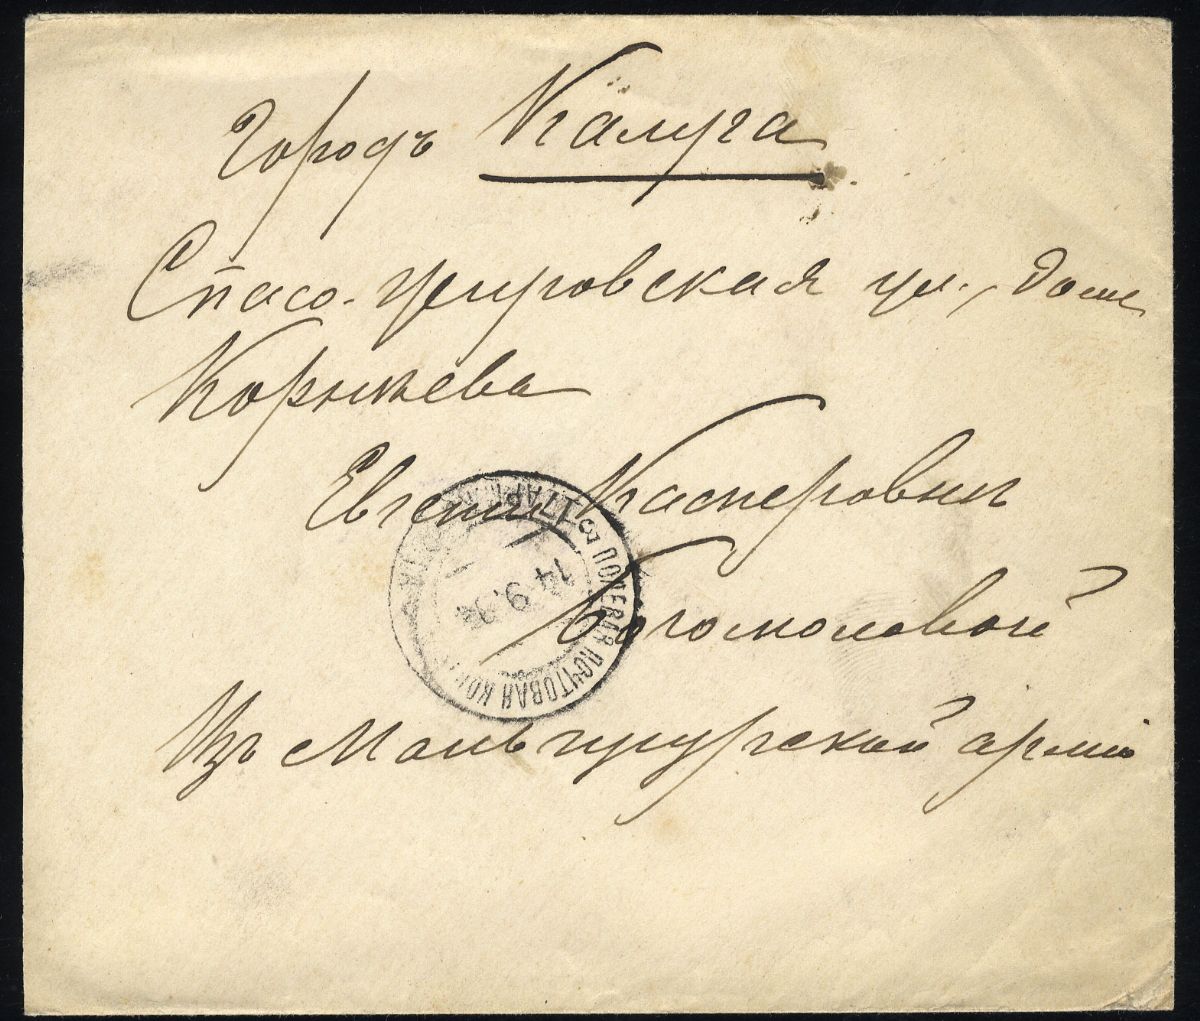 Городъ Калуга
Спасо-Жировская ул., домъ
Корнѣева
Евгеніи Касперовнѣ
Богомоловой
Изъ Маньчжурской арміи
ПОЛЕВАЯ ПОЧТОВАЯ КОН
14.9.